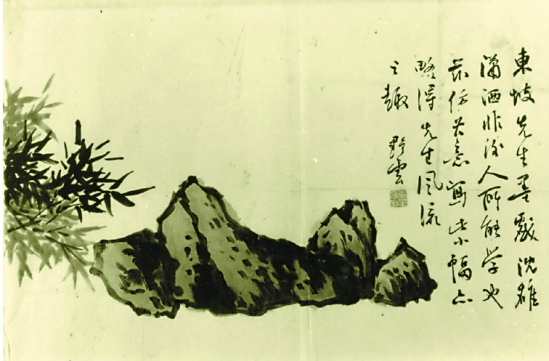 東坡先生墨戲沈雄
瀟洒非後人所能學也
茲仿其意寫此小幅亦
略得先生風流
之趣 野雲